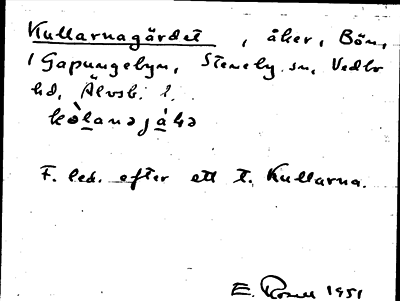 Kullarnagärdet, åker, Bön,
i Gapungebyn, Steneby sn, Vedbo
hd, Älvsb. l.
F. led. efter ett t. Kullarna.
E. 1951